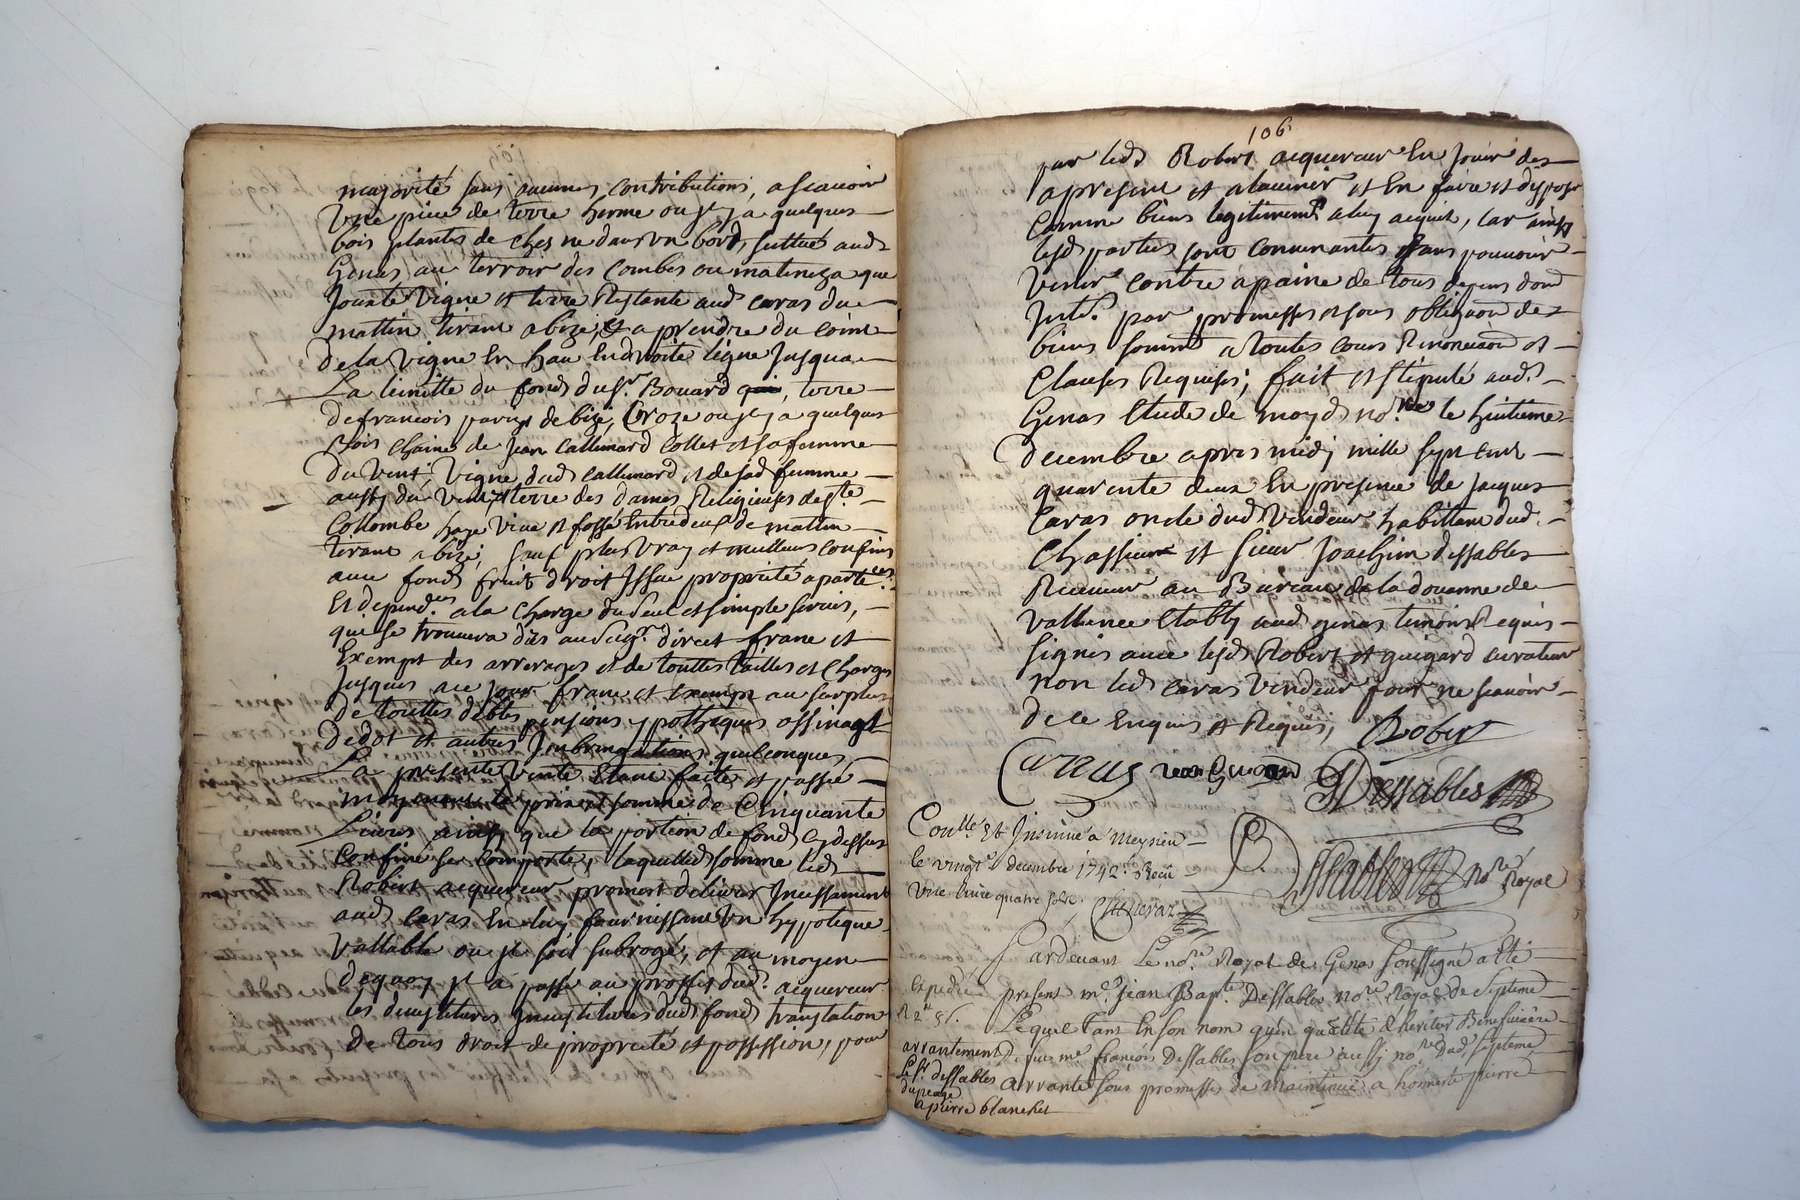 majorité sans aucunes contributions, a scauoir
Une piece de terre herme ou jl y a quelques
bois plantés de chesne dans un bord, scittué aud.
Genas au terroir des combes ou matineza que
jouxte vigne et terre Restante aud caras du
mattin tirant a bize, et a prendre du coin
De la vigne En haut En droite ligne jusqua
La limitte du fonds du sr. Bouard qui, terre
de francois paris de bize, Croze ou jl y a quelques
bois chaine de Jean Callemard Collet et sa femme
Du vent, Vigne dud callemard et de sad femme
aussy du vent, terre des dames Religieuses de ste
Collombe haye viue et fossé Entredeux de mattin
tirant a bize, sauf plus vray et meilleurs confins
auec fonds fruits droit Issue proprieté apartces.
Et dependces. a la charge du seul et simple seruis,
qui se trouuera dûs au sugr. direct franc et
Exempt des arrerages et de touttes tailles et charges
jusques au jour franc et exempt au surplus
de touttes debtes pensions, ypotheques assinaôt
De dot et autres Jnbringations quelconques,
La presente vente Etant faite et passée
moyenant le prix et somme de Cinquante
Liures ainsy que la portion de fonds cy dessus
Confiné se comporte, laquelled somme led
Robert acquereur promet deliurer Incessament
aud caras En luy fournissant un hypoteque
Vallable ou jl soit subrogé, et au moyen
dequoy jl a passé au proffit dud. acquereur
les deuestitures Inuestitures dud fonds translation
de tous droit de proprieté et possession, pour
106
par led Robert acquereur En jouir des
apresent et alauenir et En faire et disposer
Comme biens legitimemt aluy acquit, car ainsy
lesd parties sont conuenantes sans pouuoir
Venir contre apaine de tous depens dom
Jnts. par promesses et sous obligaôn de
biens soumis a toutes cours Renonciaôn et
Clauses Requises; fait et stipulé aud.
Genas Etude de moyd no.re le huitieme
Decembre apres midy mille sept cent
quarente deux En presence de jacques
Caras oncle dud Vendeur habittant dud.
Chassieu et sieur Joachim dessables
Receueur au Bureau de la douanne de
Vallance Etably aud genas temoins Requis
Signés auec lesd Robert et guigard curateur
non led caras Vendeur pour ne scauoir
de ce Enquis et Requis, Robert
Careus jean Guigard JDessables
Conllé Et Jnsinué a Meysieu
le vingt decembre 1742. Receu
Une liure quatre sols.
Dessables No.re Royal
Pardeuant Le no.re Royal de Genas soussigné a Eté
Expedié present me. Jean Bapte. Dessables no.re Royal de Septeme
Lequel tant En son nom qu'en qualité d'heritier Beneficiaire
arrantement De feu me. françois Dessables son pere aussy no.re Dud. septeme,
Le sr. dessables arrante sous promesses de maintenüe a honneste pierre
du peage
a pierre blanchet